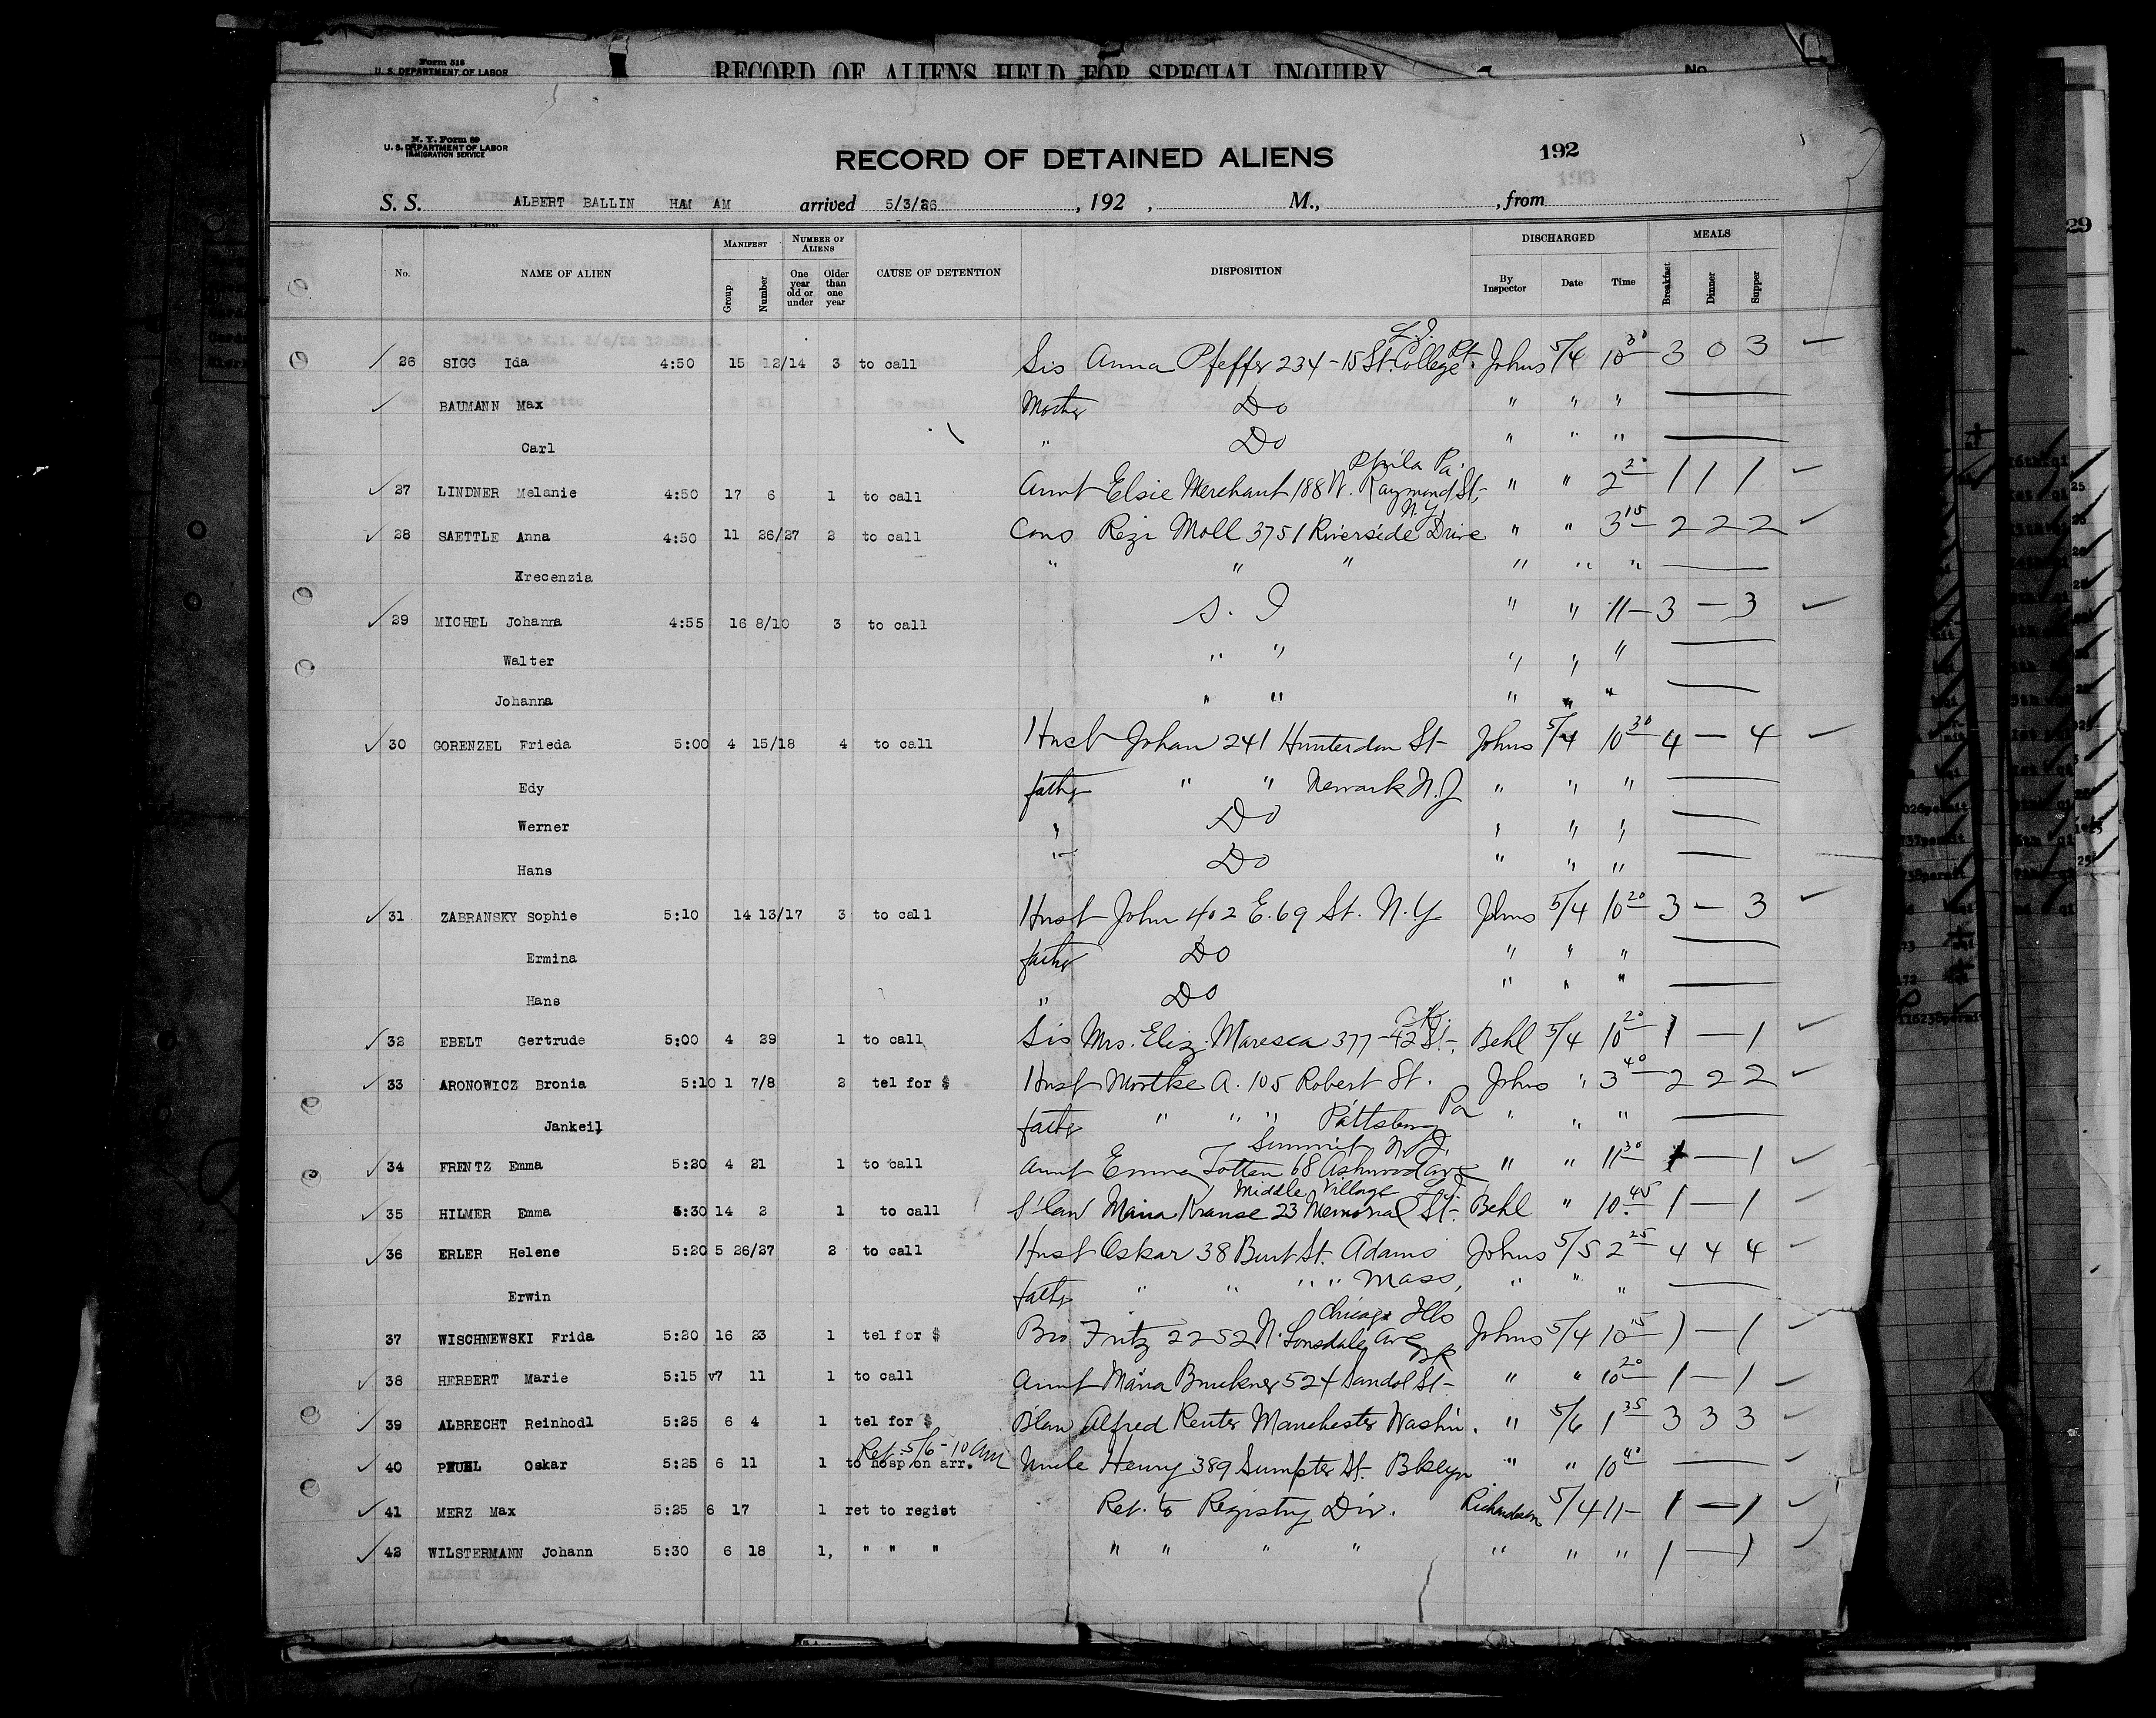 Form 518
U. S. DEPARTMENT OF LABOR
RECORD OF ALIENS HELD FOR SPECIAL INQUIRY
No.
N. Y. Form 69
U. S. DEPARTMENT OF LABOR
IMMIGRATION SERVICE
RECORD OF DETAINED ALIENS
192
S. S. ALBERT BALLIN HAM AM arrived 5/3/26 , 192 , M., , from
No. NAME OF ALIEN MANIFEST Group Number NUMBER OF ALIENS One year old or under Older than one year CAUSE OF DETENTION DISPOSITION DISCHARGED By Inspector Date Time MEALS Breakfast Dinner Supper
L. I.
26 SIGG Ida 4:50 15 12/14 3 to call Sis Anna Pfeffer 234 - 15 St. College Pt. Johns 5/4 10 30 3 0 3
BAUMANN Max Mother Do " " "
Carl " Do " " "
Phila Pa.
27 LINDNER Melanie 4:50 17 6 1 to call Aunt Elsie Merchant 188 W. Raymond St, " " 2 20 1 1 1
N. Y.
28 SAETTLE Anna 4:50 11 26/27 2 to call Cous Rezi Moll 3751 Riverside Drive " " 3 15 2 2 2
Krecenzia " " " " " "
29 MICHEL Johanna 4:55 16 8/10 3 to call S. I " " 11 — 3 — 3
Walter " " " " "
Johanna " " " " "
30 GORENZEL Frieda 5:00 4 15/18 4 to call Husb Johan 241 Hunterdon St Johns 5/4 10 30 4 — 4
Edy father " " Newark N. J " " "
Werner " Do " " "
Hans " Do " " "
31 ZABRANSKY Sophie 5:10 14 13/17 3 to call Husb John 402 E. 69 St. N. Y Johns 5/4 10 20 3 — 3
Ermina father Do " " "
Hans " Do " " "
32 EBELT Gertrude 5:00 4 29 1 to call Sis Mrs. Eliz. Maresca 377 - 42 St. Behl 5/4 10 20 1 — 1
33 ARONOWICZ Bronia 5:10 1 7/8 2 tel for $ Husb Mortke A. 105 Robert St. Johns " 3 40 2 2 2
Jankeil father " " " Pittsburg Pa " " "
Summit N. J.
34 FRENTZ Emma 5:20 4 21 1 to call Aunt Emma Totten 68 Ashwood Ave " " 11 30 1 — 1
Middle Village L. I.
35 HILMER Emma 5:30 14 2 1 to call S'law Maria Krause 23 Memorial St. Behl " 10 45 1 — 1
36 ERLER Helene 5:20 5 26/27 2 to call Husb Oskar 38 Burt St. Adams Johns 5/5 2 25 4 4 4
Erwin father " " " " Mass, " " "
Chicago Ills
37 WISCHNEWSKI Frida 5:20 16 23 1 tel for $ Bro Fritz 2252 N. Lonsdale Ave Johns 5/4 10 15 1 — 1
BK
38 HERBERT Marie 5:15 v7 11 1 to call Aunt Maria Bruckner 524 Sandol St " " 10 20 1 — 1
39 ALBRECHT Reinhodl 5:25 6 4 1 tel for $ B'law Alfred Reuter Manchester Washin. " 5/6 1 35 3 3 3
Ret. 5/6 - 10 am
40 PFUHL Oskar 5:25 6 11 1 to hosp on arr. Uncle Henry 389 Sumpter St. Bklyn " " 10 40
41 MERZ Max 5:25 6 17 1 ret to regist Ret. to Registry Div. Richardson 5/4 11 — 1 — 1
42 WILSTERMANN Johann 5:30 6 18 1, " " " " " " " " " " 1 — 1
29